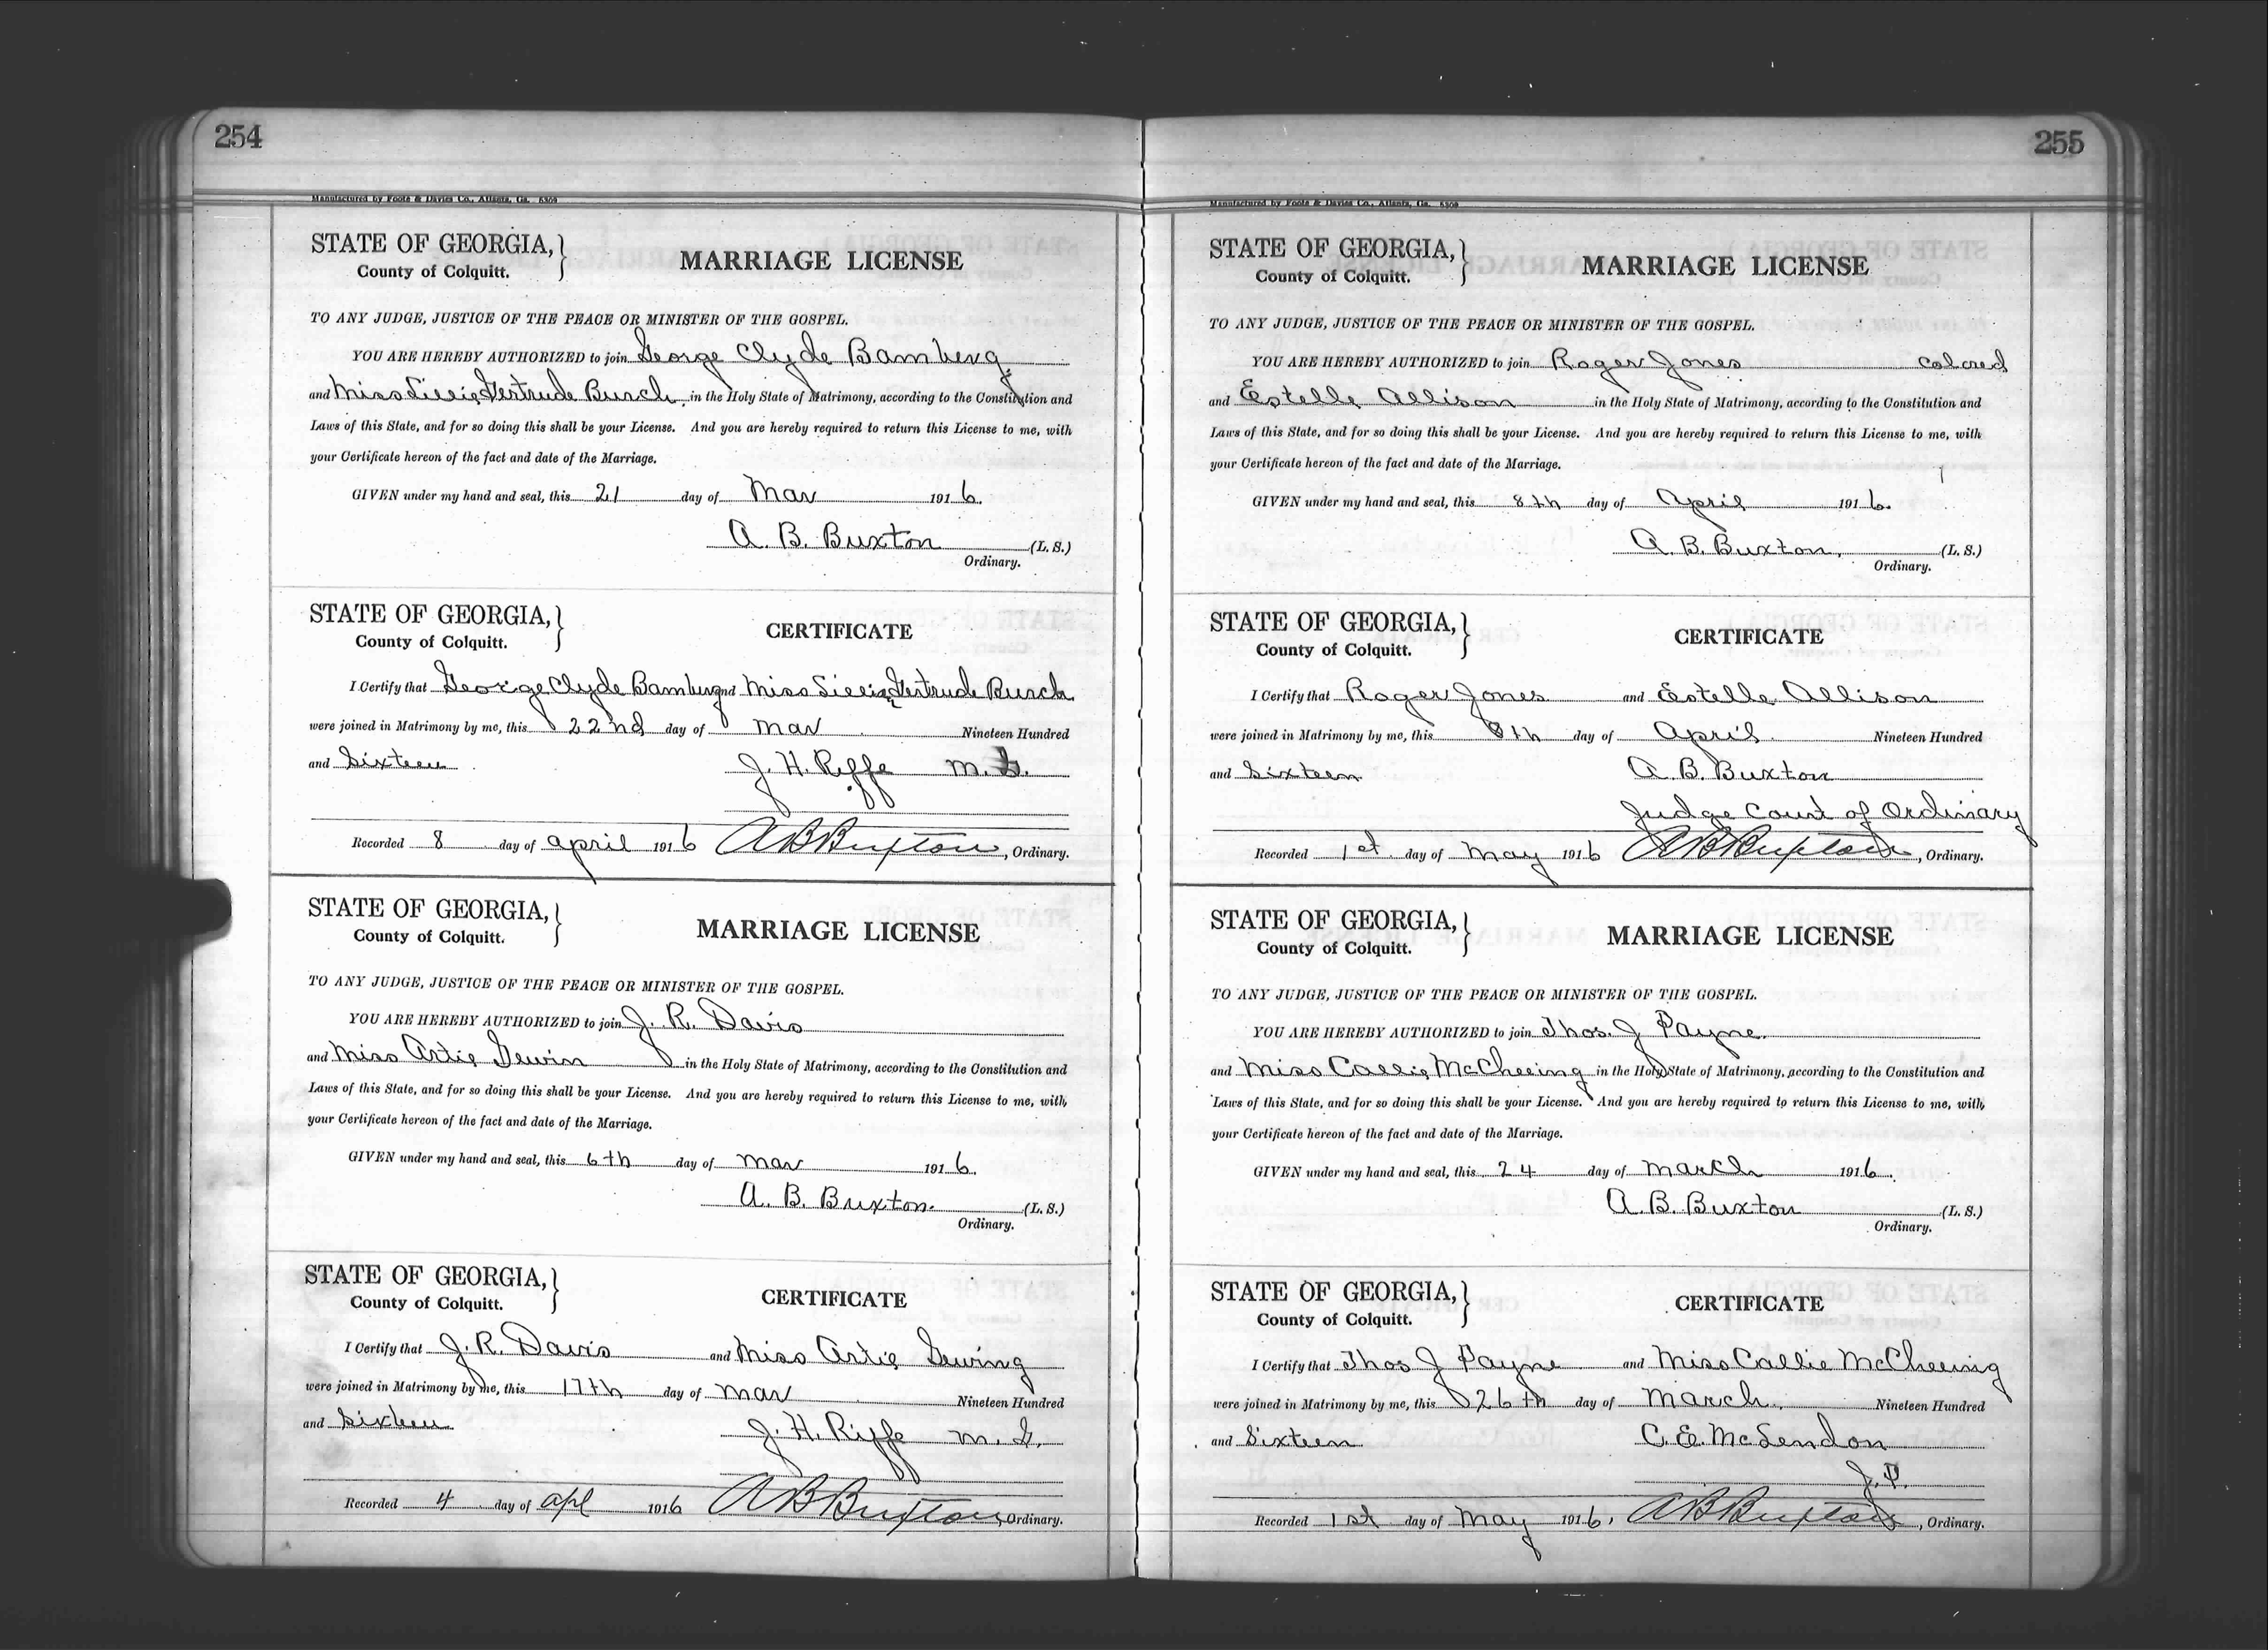 254
Manufactured by Foote & Davies Co., Atlanta, Ga. 5309
STATE OF GEORGIA,
County of Colquitt.
MARRIAGE LICENSE
TO ANY JUDGE, JUSTICE OF THE PEACE OR MINISTER OF THE GOSPEL.
YOU ARE HEREBY AUTHORIZED to join George Clyde Bamberg
and Miss Lillie Gertrude Burch in the Holy State of Matrimony, according to the Constitution and
Laws of this State, and for so doing this shall be your License. And you are hereby required to return this License to me, with
your Certificate hereon of the fact and date of the Marriage.
GIVEN under my hand and seal, this 21 day of Mar 1916.
A. B. Buxton (L. S.)
Ordinary.
STATE OF GEORGIA,
County of Colquitt.
CERTIFICATE
I Certify that George Clyde Bamberg and Miss Lillie Gertrude Burch
were joined in Matrimony by me, this 22nd day of Mar Nineteen Hundred
and Sixteen J. H. Riffe M. G.
Recorded 8 day of April 1916 A B Buxton, Ordinary.
STATE OF GEORGIA,
County of Colquitt.
MARRIAGE LICENSE
TO ANY JUDGE, JUSTICE OF THE PEACE OR MINISTER OF THE GOSPEL.
YOU ARE HEREBY AUTHORIZED to join J. R. Davis
and Miss Artie Gewin in the Holy State of Matrimony, according to the Constitution and
Laws of this State, and for so doing this shall be your License. And you are hereby required to return this License to me, with
your Certificate hereon of the fact and date of the Marriage.
GIVEN under my hand and seal, this 6th day of Mar 1916.
A. B. Buxton. (L. S.)
Ordinary.
STATE OF GEORGIA,
County of Colquitt.
CERTIFICATE
I Certify that J. R. Davis and Miss Artie Gewing
were joined in Matrimony by me, this 17th day of Mar Nineteen Hundred
and Sixteen J. H. Riffe M. G.
Recorded 4 day of Apl 1916 A B Buxton, Ordinary.
255
Manufactured by Foote & Davies Co., Atlanta, Ga. 5309
STATE OF GEORGIA,
County of Colquitt.
MARRIAGE LICENSE
TO ANY JUDGE, JUSTICE OF THE PEACE OR MINISTER OF THE GOSPEL.
YOU ARE HEREBY AUTHORIZED to join Roger Jones colored
and Estelle Allison in the Holy State of Matrimony, according to the Constitution and
Laws of this State, and for so doing this shall be your License. And you are hereby required to return this License to me, with
your Certificate hereon of the fact and date of the Marriage.
GIVEN under my hand and seal, this 8th day of April 1916.
A. B. Buxton. (L. S.)
Ordinary.
STATE OF GEORGIA,
County of Colquitt.
CERTIFICATE
I Certify that Roger Jones and Estelle Allison
were joined in Matrimony by me, this 8th day of April Nineteen Hundred
and Sixteen A. B. Buxton
Judge Court of Ordinary
Recorded 1st day of May 1916 A B Buxton, Ordinary.
STATE OF GEORGIA,
County of Colquitt.
MARRIAGE LICENSE
TO ANY JUDGE, JUSTICE OF THE PEACE OR MINISTER OF THE GOSPEL.
YOU ARE HEREBY AUTHORIZED to join Thos. J Payne.
and Miss Callie McCheeing in the Holy State of Matrimony, according to the Constitution and
Laws of this State, and for so doing this shall be your License. And you are hereby required to return this License to me, with
your Certificate hereon of the fact and date of the Marriage.
GIVEN under my hand and seal, this 24 day of March 1916.
A. B. Buxton (L. S.)
Ordinary.
STATE OF GEORGIA,
County of Colquitt.
CERTIFICATE
I Certify that Thos J Payne and Miss Callie McCheeing
were joined in Matrimony by me, this 26th day of March. Nineteen Hundred
and Sixteen C. E. McLendon
J. P.
Recorded 1st day of May 1916, A B Buxton, Ordinary.